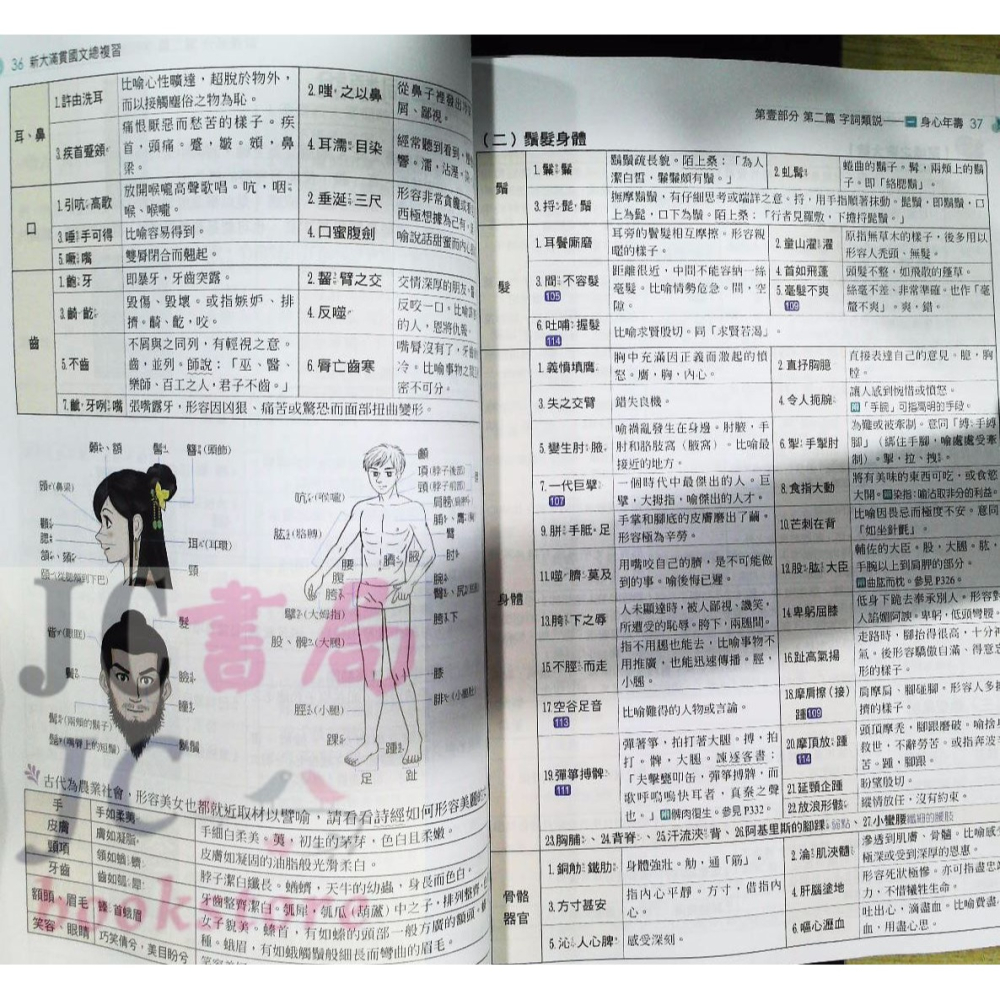 36 新大滿貫國文總複習
耳、鼻
1.許由洗耳
比喻心性曠達,超脫於物外,
而以接觸塵俗之物為恥。
2.嗤之以鼻
從鼻子裡發出
屑、鄙視。
3.疾首蹙頞
痛恨厭惡而愁苦的樣子。疾
首,頭痛。蹙,皺。頞,鼻
梁。
4.耳濡目染
經常聽到看到,
響。濡,沾溼。
口
1.引吭高歌
放開喉嚨高聲歌唱。吭,咽
喉、喉嚨。
2.垂涎三尺
形容非常貪饞或
西極想據為己有。
3.唾手可得
比喻容易得到。
4.口蜜腹劍
喻說話甜蜜而內心
5.噘嘴
雙脣閉合而翹起。
齒
1.齙牙
即暴牙,牙齒突露。
2.齧臂之交
交情深厚的朋友。
3.齮齕
毀傷、毀壞。或指嫉妒、排
擠。齮、齕,咬。
4.反噬
反咬一口。比喻
的人,恩將仇報。
5.不齒
不屑與之同列,有輕視之意。
齒,並列。師說:「巫、醫、
樂師、百工之人,君子不齒。」
6.脣亡齒寒
嘴脣沒有了,牙齒
冷。比喻事物之間
密不可分。
7.齜牙咧嘴 張嘴露牙,形容因凶狠、痛苦或驚恐而面部扭曲變形。
額、額
髻
簪(頭飾)
頞(鼻梁)
顴
腮
頷、頦
珥(耳環)
頸
髮
臉
瞳
髯(兩頰的鬍子)
髭(嘴脣上的短鬚)
鬍鬚
顱
項(脖子後部)
頸(脖子前部)
吭(喉嚨)
肩膀
肱(胳膊)
臂
肘
腰
臍
腹
腕
胯
胯下
擘(大姆指)
股、髀(大腿)
膝
腓(小腿肚)
脛(小腿)
踝
踵
足
趾
古代為農業社會,形容美女也都就近取材以譬喻,請看看詩經如何形容美麗的
手
手如柔荑
手細白柔美。荑,初生的茅芽,色白且柔嫩。
皮膚
膚如凝脂
皮膚如凝固的油脂般光滑柔白。
頸項
領如蝤蠐
脖子潔白纖長。蝤蠐,天牛的幼蟲,身長而色白。
牙齒
齒如瓠犀
牙齒整齊潔白。瓠犀,瓠瓜(葫蘆)中之子,排列整齊,
額頭、眉毛
螓首蛾眉
女子貌美。螓首,有如螓的頭部一般方廣的額頭。螓
種。蛾眉,有如蛾觸鬚般細長而彎曲的眉毛。
笑容、眼睛
巧笑倩兮,美目盼兮
第壹部分 第二篇 字詞類說——一 身心年壽 37
(二)鬚髮身體
鬚
1.鬑鬑
鬍鬚疏長貌。陌上桑:「為人
潔白皙,鬑鬑頗有鬚。」
2.虬髯
蜷曲的鬍子。髯,兩頰上的鬍
子。即「絡腮鬍」。
3.捋髭鬚
撫摩鬍鬚,有仔細思考或端詳之意。捋,用手指順著抹動。髭鬚,即鬍鬚,口
上為髭,口下為鬚。陌上桑:「行者見羅敷,下擔捋髭鬚。」
髮
1.耳鬢廝磨
耳旁的鬢髮相互摩擦。形容親
暱的樣子。
2.童山濯濯
原指無草木的樣子,後多用以
形容人禿頭、無髮。
3.間不容髮
105
距離很近,中間不能容納一絲
毫髮。比喻情勢危急。間,空
隙。
4.首如飛蓬
頭髮不整,如飛散的蓬草。
5.毫髮不爽
109
絲毫不差、非常準確。也作「毫
釐不爽」。爽,錯。
6.吐哺握髮
114
比喻求賢殷切。同「求賢若渴」。
身體
1.義憤填膺
胸中充滿因正義而激起的憤
怒。膺,胸,內心。
2.直抒胸臆
直接表達自己的意見。臆,胸
膛。
3.失之交臂
錯失良機。
4.令人扼腕
讓人感到惋惜或憤怒。
「手腕」可指高明的手段。
5.變生肘腋
喻禍亂發生在身邊。肘腋,手
肘和胳肢窩(腋窩)。比喻最
接近的地方。
6.掣手掣肘
為難或被牽制。意同「縛手縛
腳」(綁住手腳,喻處處受牽
制)。掣,拉、拽。
7.一代巨擘
107
一個時代中最傑出的人。巨
擘,大拇指,喻傑出的人才。
8.食指大動
將有美味的東西可吃,或食慾
大開。染指:喻沾取非分的利益。
9.胼手胝足
手掌和腳底的皮膚磨出了繭。
形容極為辛勞。
10.芒刺在背
比喻因畏忌而極度不安。意同
「如坐針氈」。
11.噬臍莫及
用嘴咬自己的臍,是不可能做
到的事。喻後悔已遲。
12.股肱大臣
輔佐的大臣。股,大腿。肱,
手腕以上到肩胛的部分。
曲肱而枕。參見P326。
13.胯下之辱
人未顯達時,被人鄙視、譏笑,
所遭受的恥辱。胯下,兩腿間。
14.卑躬屈膝
低身下跪去奉承別人。形容對
人諂媚阿諛。卑躬,低頭彎腰。
15.不脛而走
指不用腿也能去,比喻事物不
用推廣,也能迅速傳播。脛,
小腿。
16.趾高氣揚
走路時,腳抬得很高,十分神
氣。後形容驕傲自滿、得意忘
形的樣子。
17.空谷足音
113
比喻難得的人物或言論。
18.摩肩擦(接)
踵109
肩摩肩,腳碰腳。形容人多擁
擠的樣子。
19.彈箏搏髀
111
彈著箏,拍打著大腿。搏,拍
打。髀,大腿。諫逐客書:
「夫擊甕叩缶,彈箏搏髀,而
歌呼嗚嗚快耳者,真秦之聲
也。」髀肉復生。參見P332。
20.摩頂放踵
114
頭頂摩禿,腳跟磨破。喻捨
救世,不辭勞苦。或指奔波
苦。踵,腳跟。
21.延頸企踵
盼望殷切。
22.放浪形骸
縱情放任,沒有約束。
23.胸脯、24.背脊、25.汗流浹背、26.阿基里斯的腳踝:弱點、27.小蠻腰:纖細的腰肢
骨骼
器官
1.銅觔鐵肋
身體強壯。觔,通「筋」。
2.淪肌浹髓
滲透到肌膚、骨髓。比喻感
極深或受到深厚的恩惠。
3.方寸甚安
指內心平靜。方寸,借指內
心。
4.肝腦塗地
形容死狀極慘。亦可指盡忠
力,不惜犧牲生命。
5.沁人心脾
感受深刻。
6.嘔心瀝血
吐出心,滴盡血。比喻費盡
血,用盡心思。
JC書局